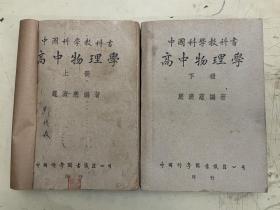 中國科學教科書
高中物理學
上冊
嚴濟慈編著
中國科學圖書儀器公司
印行
中國科學教科書
高中物理學
下冊
嚴濟慈編著
中國科學圖書儀器公司
印行